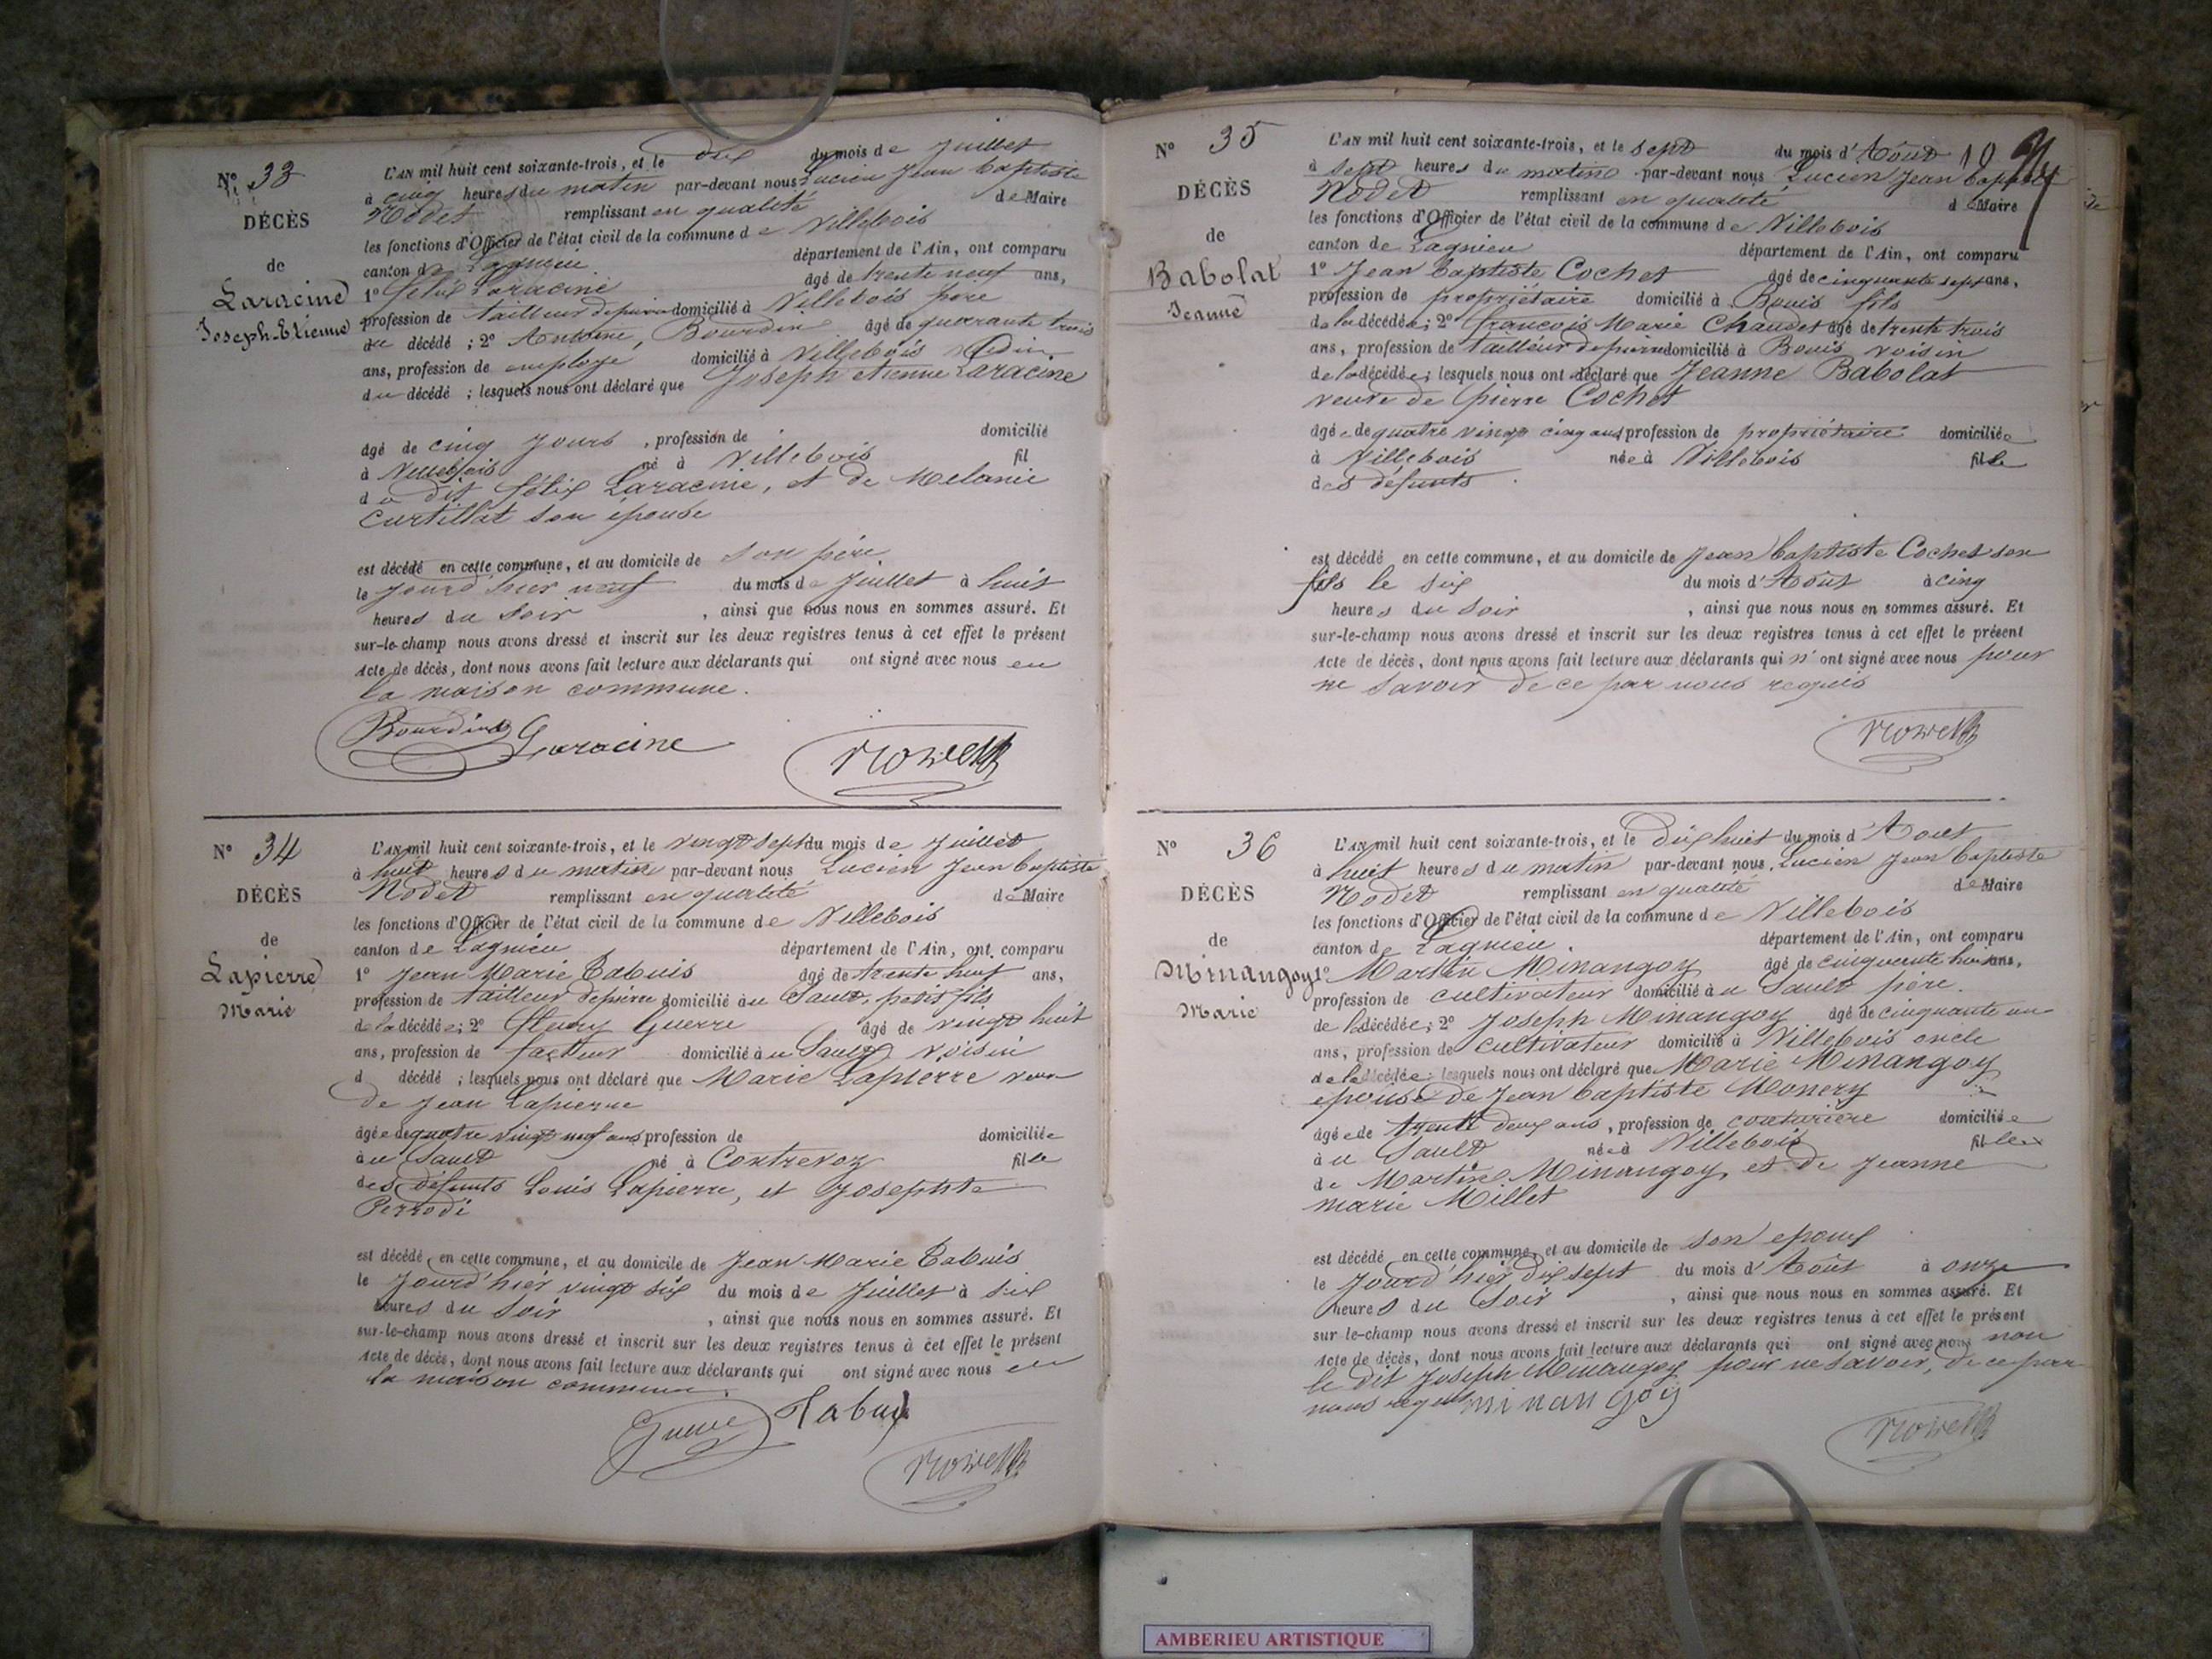 N° 33
DÉCÈS
de
Laracine
Joseph-Etienne
L'AN mil huit cent soixante-trois, et le dix du mois de Juillet
à cinq heures du matin par-devant nous Lucien Jean Baptiste
Nodet remplissant en qualité de Maire
les fonctions d'Officier de l'état civil de la commune de Villebois
canton de Lagnieu département de l'Ain, ont comparu
1° Félix Laracine âgé de trente neuf ans,
profession de tailleur de pierre domicilié à Villebois père
du décédé ; 2° Antoine, Bourdin âgé de quarante trois
ans, profession de employé domicilié à Villebois
du décédé ; lesquels nous ont déclaré que Joseph etienne Laracine
âgé de cinq jours , profession de domicilié
à Villebois né à Villebois fil
du dit félix Laracine, et de Melanie
Curtillat son épouse
est décédé en cette commune, et au domicile de son père
le jourd'hier neuf du mois de Juillet à huit
heures du soir , ainsi que nous nous en sommes assuré. Et
sur-le-champ nous avons dressé et inscrit sur les deux registres tenus à cet effet le présent
Acte de décès, dont nous avons fait lecture aux déclarants qui ont signé avec nous en
la maison commune.
Bourdin Laracine
N° 34
DÉCÈS
de
Lapierre
Marie
L'AN mil huit cent soixante-trois, et le vingt sept du mois de Juillet
à huit heures du matin par-devant nous Lucien Jean baptiste
Nodet remplissant en qualité de Maire
les fonctions d'Officier de l'état civil de la commune de Villebois
canton de Lagnieu département de l'Ain, ont comparu
1° Jean Marie Tabuis âgé de trente huit ans,
profession de tailleur de pierre domicilié au Sault, petit fils
de la décédée ; 2° fleury Guerre âgé de vingt huit
ans, profession de facteur domicilié au Sault voisin
d décédé ; lesquels nous ont déclaré que Marie Lapierre veuve
de Jean Lapierre
âgée de quatre vingt neuf ans profession de domiciliée
au Sault né à Contrevoz fille
des défunts Louis Lapierre, et Josephte
Perrodi
est décédé en cette commune, et au domicile de Jean Marie Tabuis
le jourd'hier vingt six du mois de Juillet à six
heures du soir , ainsi que nous nous en sommes assuré. Et
sur-le-champ nous avons dressé et inscrit sur les deux registres tenus à cet effet le présent
Acte de décès, dont nous avons fait lecture aux déclarants qui ont signé avec nous en
la maison commune.
Guerre Tabuis
N° 35
DÉCÈS
de
Babolat
Jeanne
L'AN mil huit cent soixante-trois, et le sept du mois d'Août 19
à sept heures du matin par-devant nous Lucien Jean baptiste
Nodet remplissant en qualité de Maire
les fonctions d'Officier de l'état civil de la commune de Villebois
canton de Lagnieu département de l'Ain, ont comparu
1° Jean baptiste Cochet âgé de cinquante sept ans,
profession de propriétaire domicilié à Bouis fils
de la décédée ; 2° françois Marie Chaudet âgé de trente trois
ans, profession de tailleur de pierre domicilié à Bouis voisin
de la décédée ; lesquels nous ont déclaré que Jeanne Babolat
veuve de pierre Cochet
âgée de quatre vingt cinq ans profession de propriétaire domiciliée
à Villebois née à Villebois fille
des défunts
est décédé en cette commune, et au domicile de Jean baptiste Cochet son
fils le six du mois d'Août à cinq
heures du soir , ainsi que nous nous en sommes assuré. Et
sur-le-champ nous avons dressé et inscrit sur les deux registres tenus à cet effet le présent
Acte de décès, dont nous avons fait lecture aux déclarants qui n'ont signé avec nous pour
ne savoir de ce par nous requis
N° 36
DÉCÈS
de
Minangoy
Marie
L'AN mil huit cent soixante-trois, et le dix huit du mois d'Aout
à huit heures du matin par-devant nous Lucien Jean baptiste
Nodet remplissant en qualité de Maire
les fonctions d'Officier de l'état civil de la commune de Villebois
canton de Lagnieu. département de l'Ain, ont comparu
1° Martin Minangoy âgé de cinquante huit ans,
profession de cultivateur domicilié au Sault père.
de la décédée ; 2° Joseph Minangoy âgé de cinquante un
ans, profession de cultivateur domicilié à Villebois oncle
de la décédée ; lesquels nous ont déclaré que Marie Minangoy
epouse de Jean baptiste Monery
âgée de trente deux ans , profession de couturière domiciliée
au Sault née à Villebois fille
de Martin Minangoy, et de Jeanne
marie Millet
est décédé en cette commune, et au domicile de son epoux
le jourd'hier dix sept du mois d'Août à onze
heures du Soir , ainsi que nous nous en sommes assuré. Et
sur le-champ nous avons dressé et inscrit sur les deux registres tenus à cet effet le présent
Acte de décès, dont nous avons fait lecture aux déclarants qui ont signé avec nous non
le dit Joseph Minangoy pour ne savoir, de ce par
nous requis minangoy
AMBERIEU ARTISTIQUE